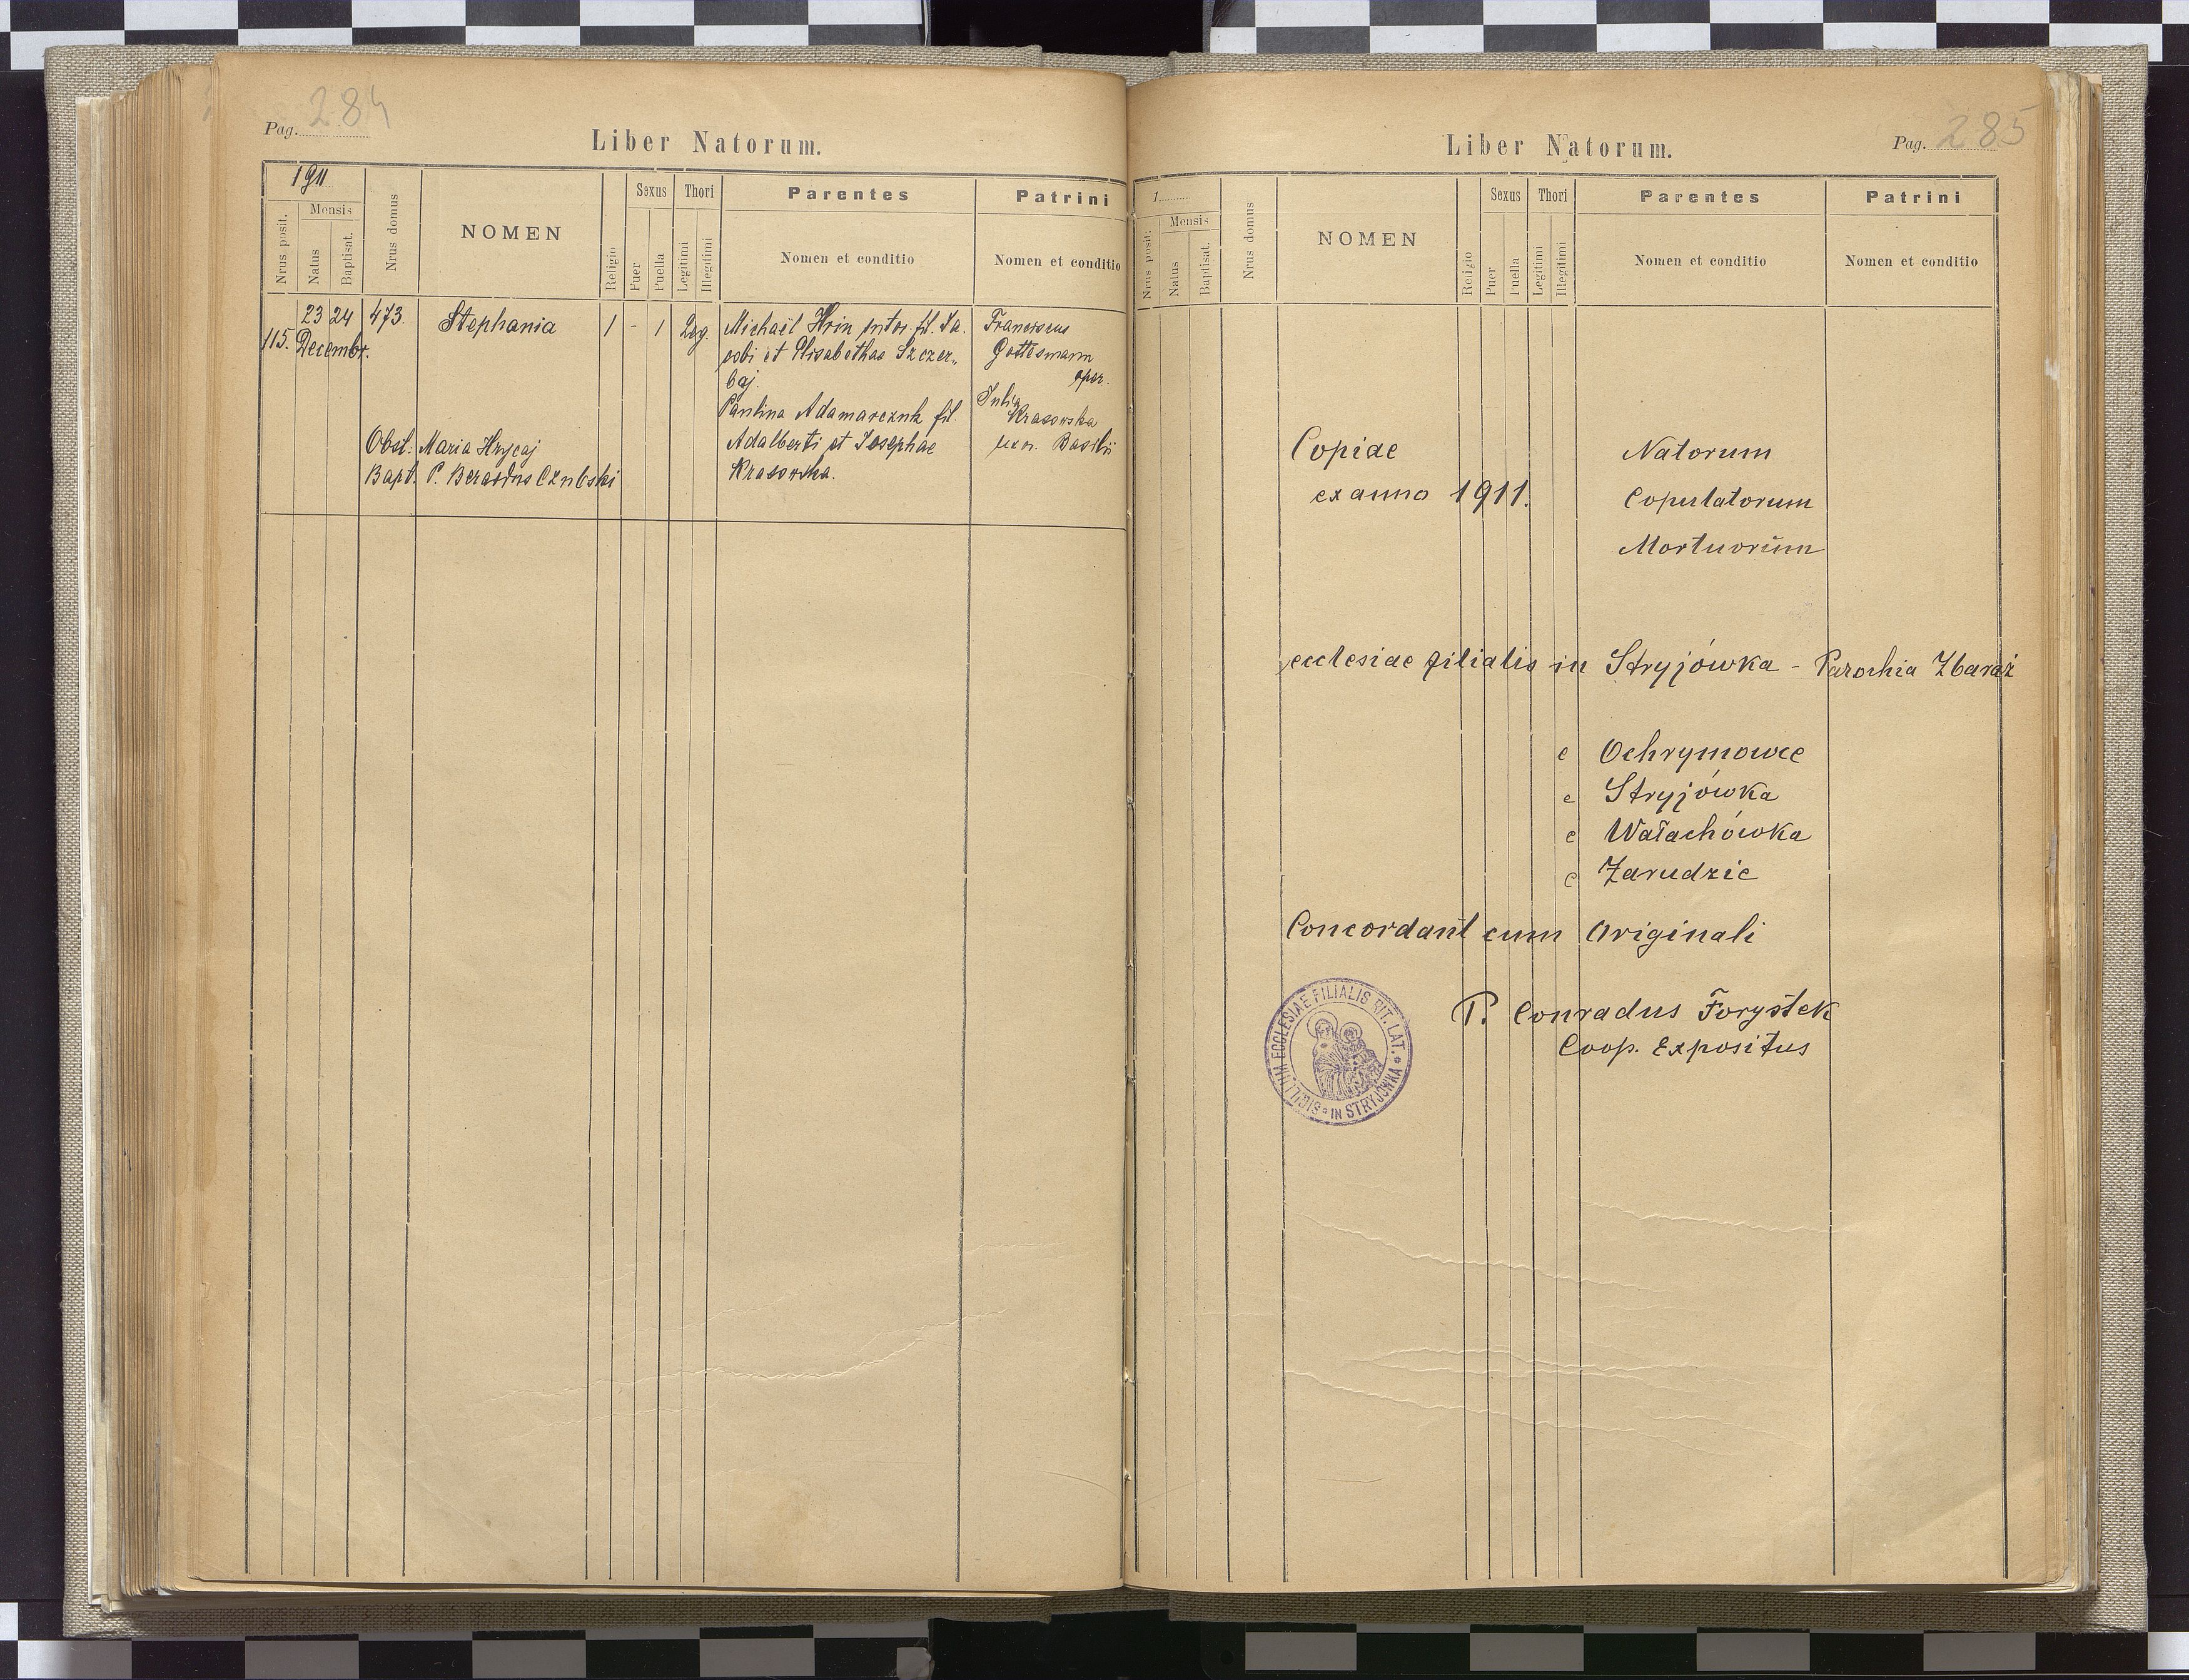 Pag. 284
Liber Natorum.
1911
Nrus posit.
Mensis
Natus
Baptisat.
Nrus domus
NOMEN
Religio
Sexus
Puer
Puella
Thori
Legitimi
Illegitimi
Parentes
Nomen et conditio
Patrini
Nomen et conditio
115. 23 24 Decembr. 473. Stephania 1 - 1 Leg.
Michaël Hrin fil. Ja-
cobi et Elisabethae Szczer„
baj.
Paulina Adamarczuk fil.
Adalberti et Josephae
Krasowska.
Franciscus
Gottesmann
oper.
Julia
Krasowska
uxor. Basilii
Obst: Maria Hrycaj
Bapt. P. Czubski
Liber Natorum.
Pag. 285
1
Nrus posit.
Mensis
Natus
Baptisat.
Nrus domus
NOMEN
Religio
Sexus
Puer
Puella
Thori
Legitimi
Illegitimi
Parentes
Nomen et conditio
Patrini
Nomen et conditio
Copiae Natorum
ex anno 1911. Copulatorum
Mortuorum
ecclesiae filialis in Stryjówka - Parochia Zbaraż
e Ochrymowce
e Stryjówka
e Wałachówka
e Zarudzie
Concordant cum Originali
SIGILLUM ECCLESIAE FILIALIS RIT. LAT. IN STRYJÓWKA
P. Conradus Forystek
Coop. Expositus